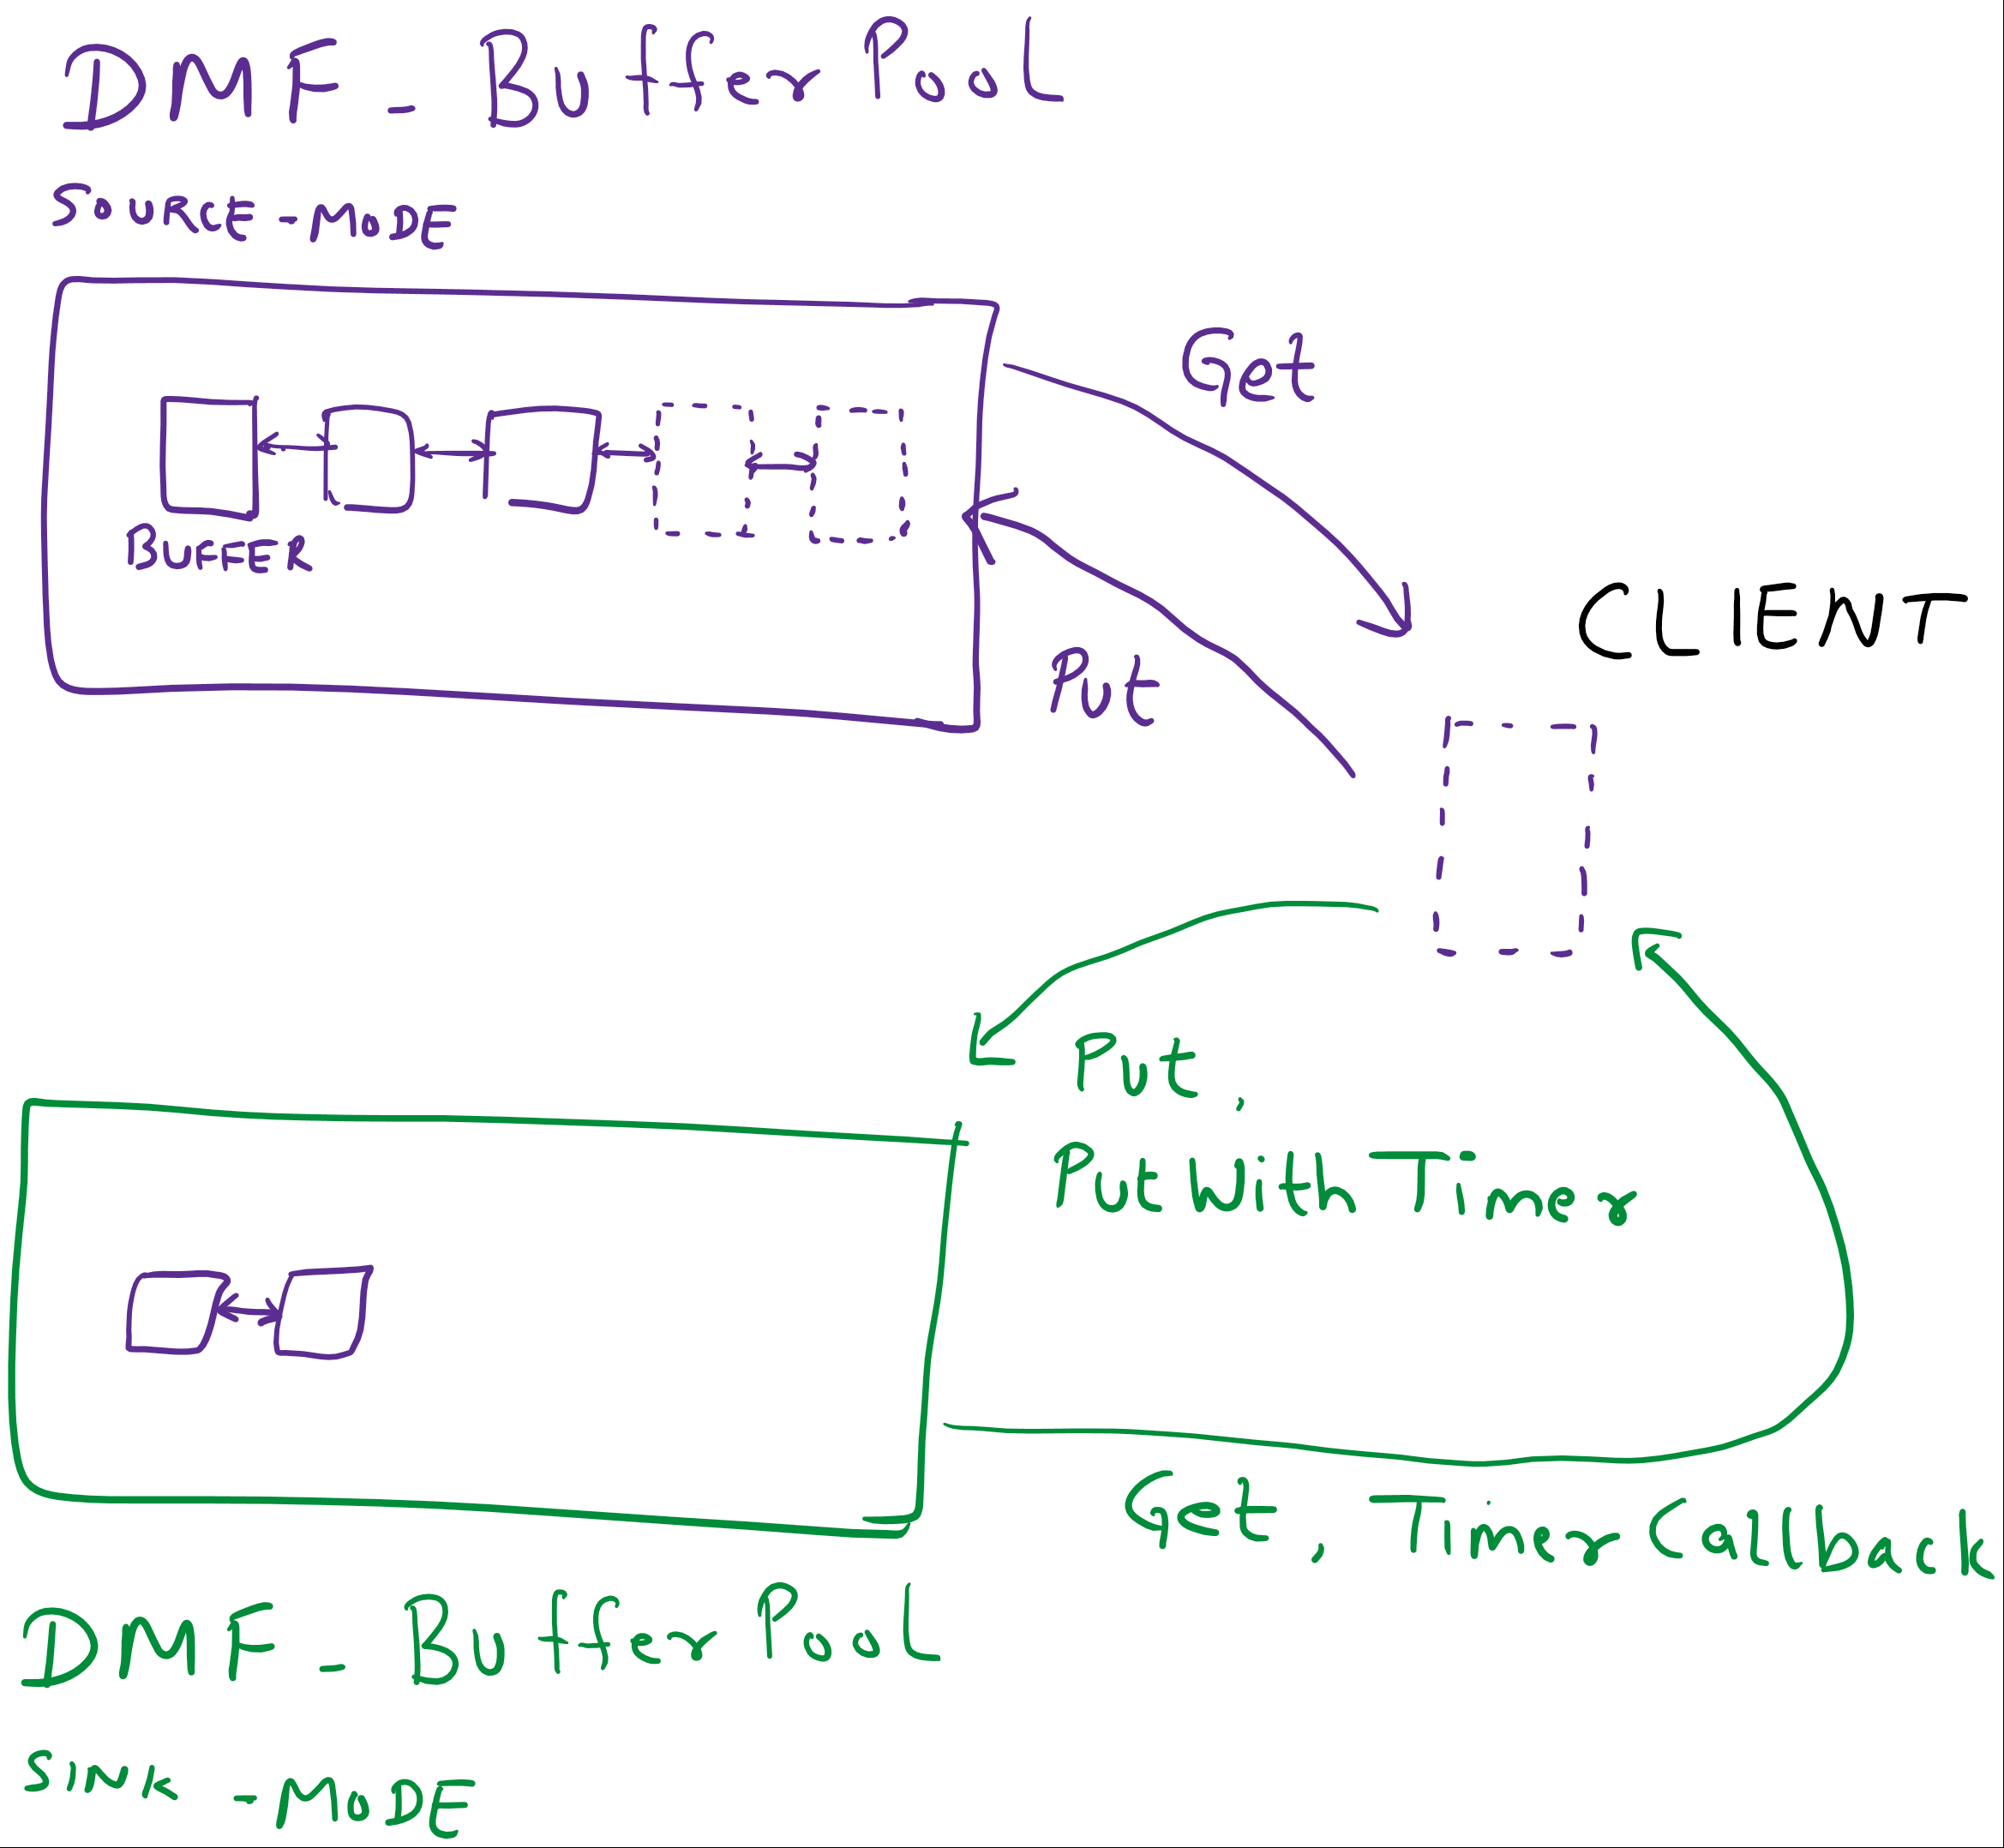 DMF_BufferPool
SOURCE-MODE
Get
BUFFER
CLIENT
Put
Put,
PutWithTimer
Get, TimerCallback
DMF_BufferPool
SINK-MODE